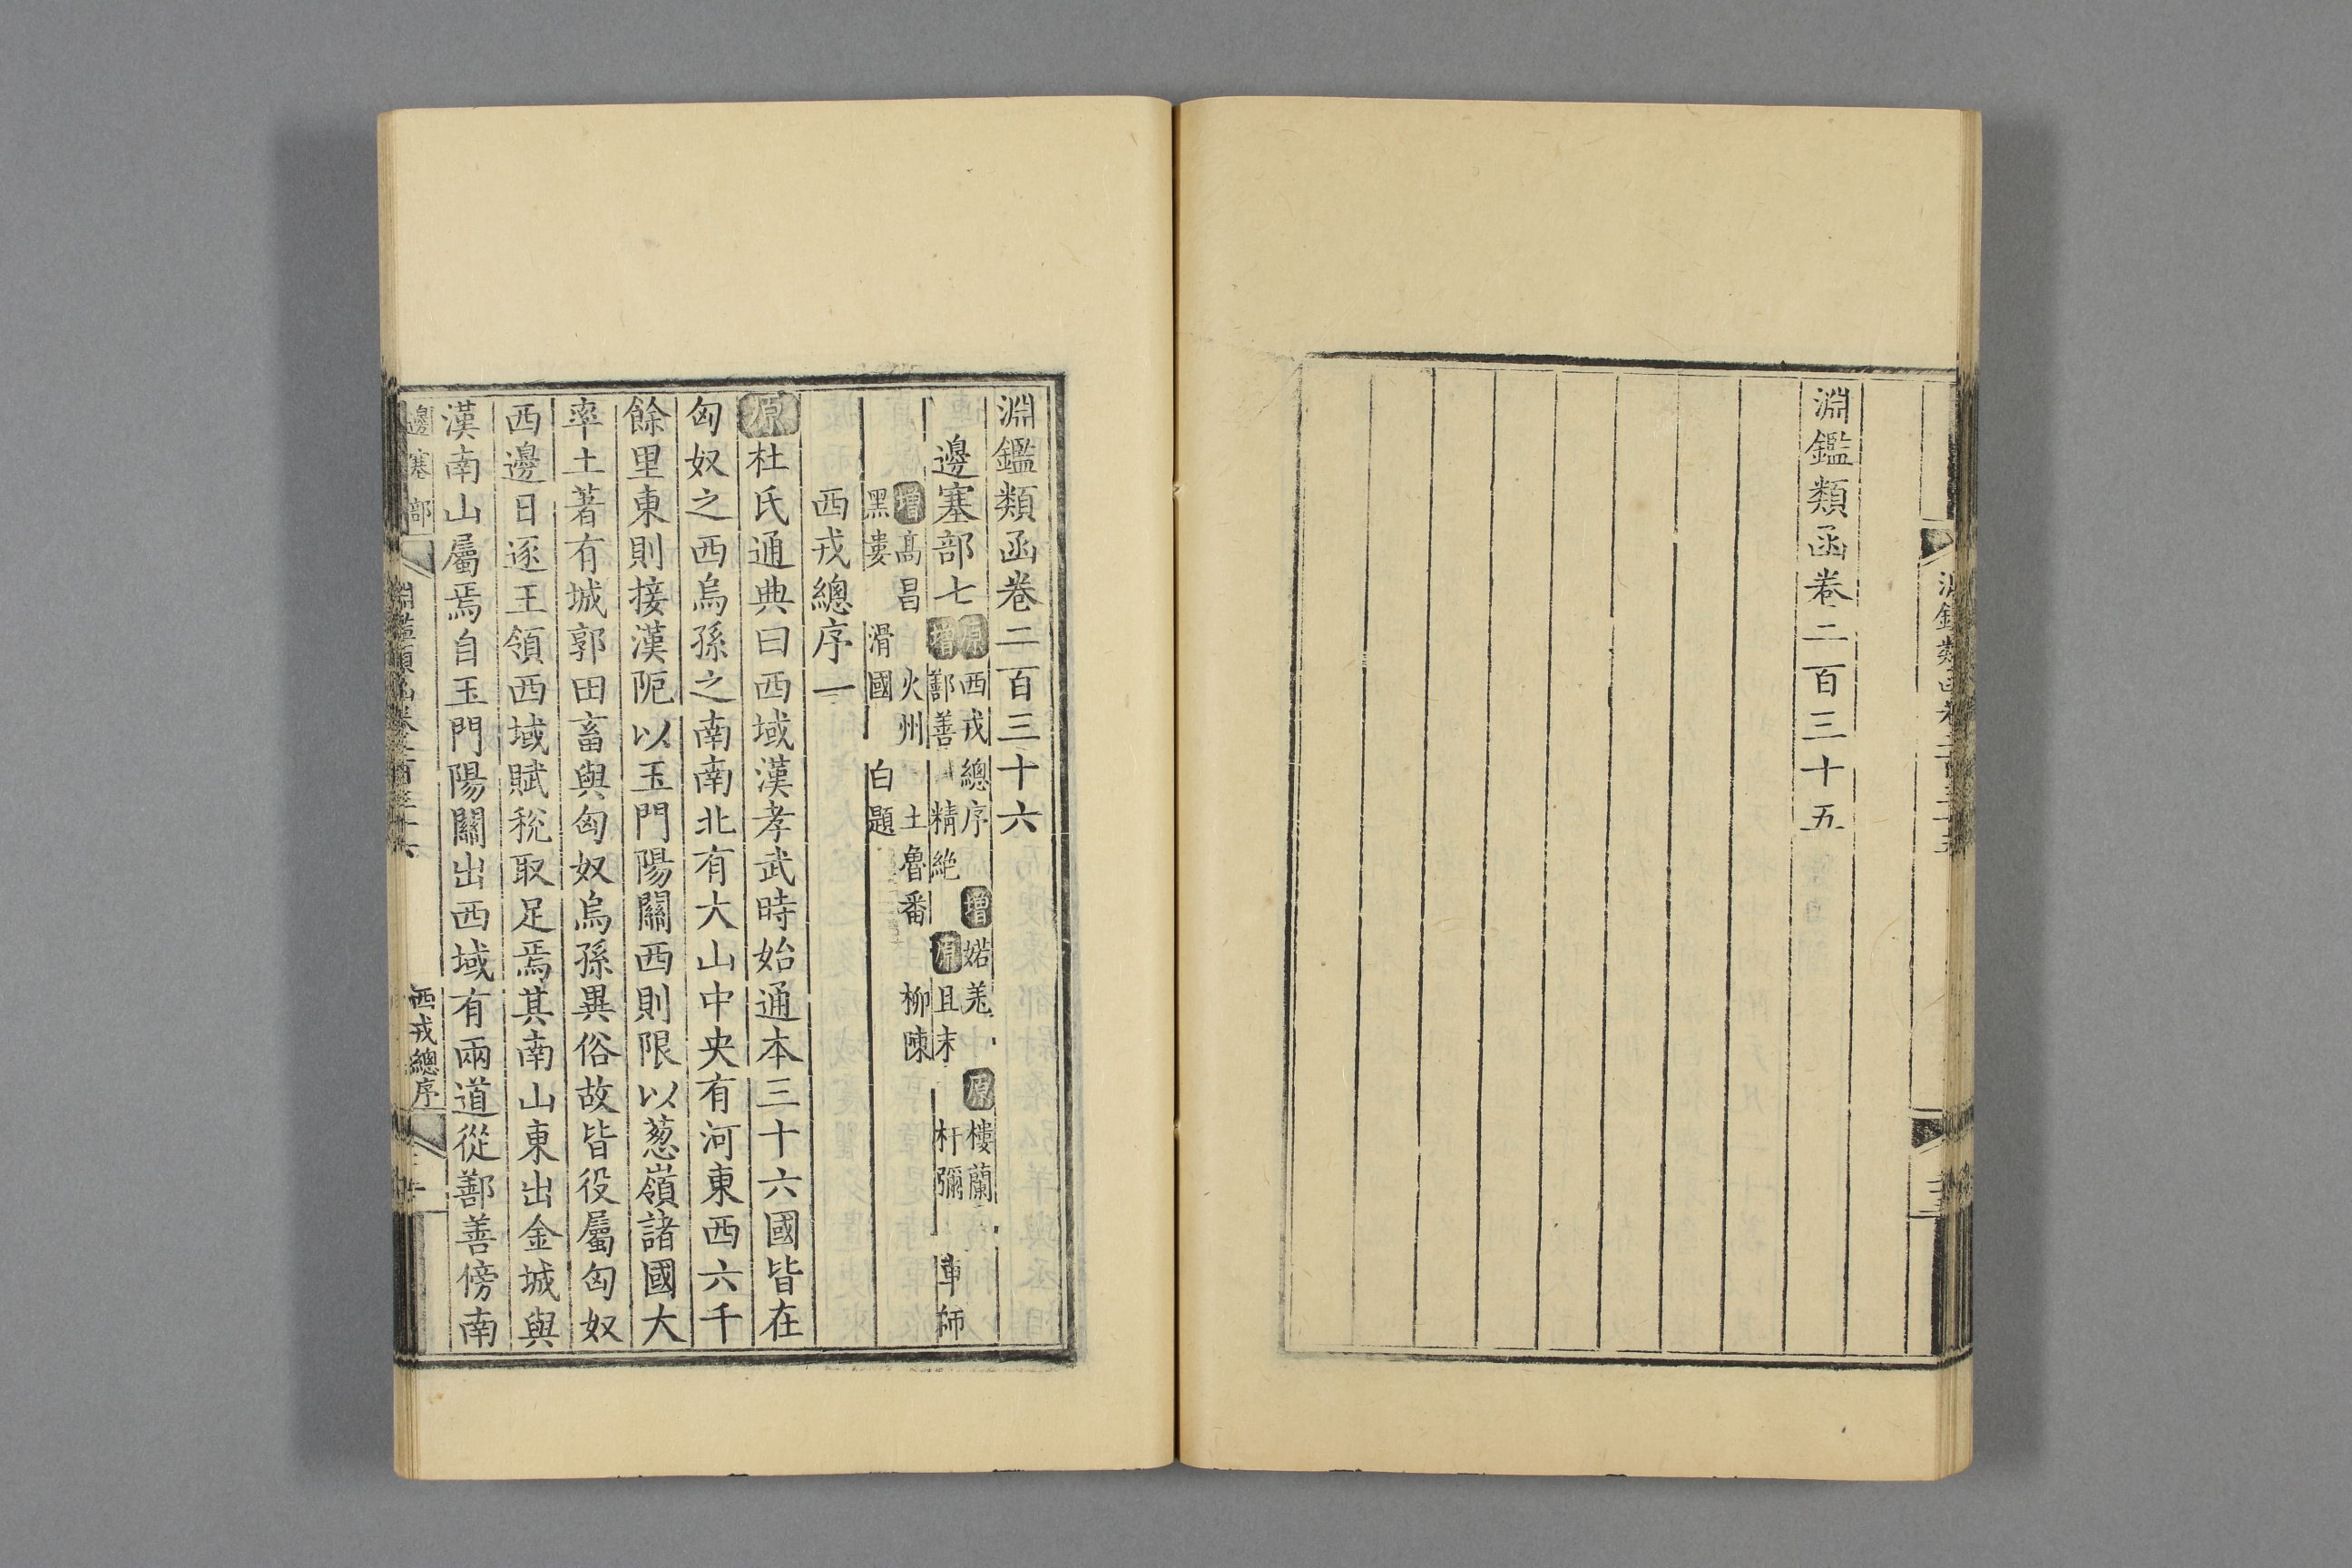 淵鑑類函卷二百三十五
淵鑑類函卷二百三十六
邊塞部七
原西戎總序 增婼羌 原樓蘭
增鄯善 精絕 原且末 杆彌 車師
增高昌 火州 土魯番 柳陳
黑婁 滑國 白題
西戎總序一
原杜氏通典曰西域漢孝武時始通本三十六國皆在
匈奴之西烏孫之南南北有大山中央有河東西六千
餘里東則接漢阨以玉門陽關西則限以葱嶺諸國大
率土著有城郭田畜與匈奴烏孫異俗故皆役屬匈奴
西邊日逐王領西域賦稅取足焉其南山東出金城與
漢南山屬焉自玉門陽關出西域有兩道從鄯善傍南
邊塞部
西戎總序